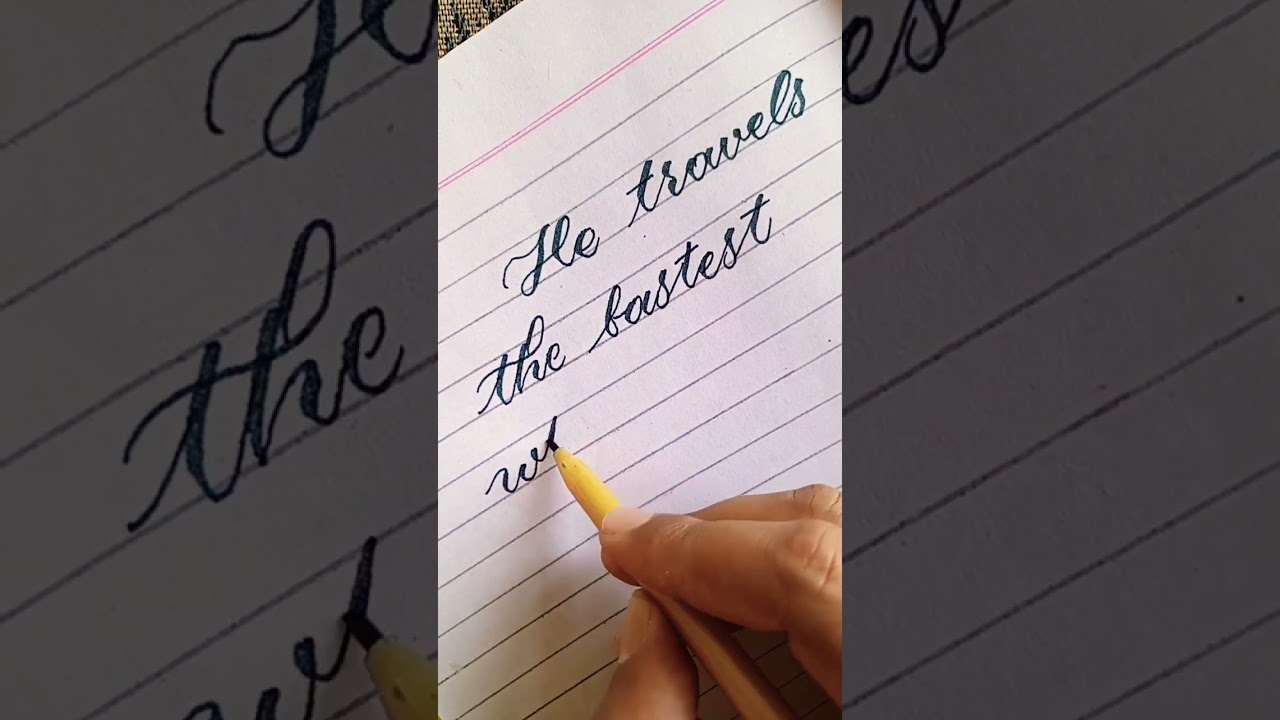 He travels
the fastest
w